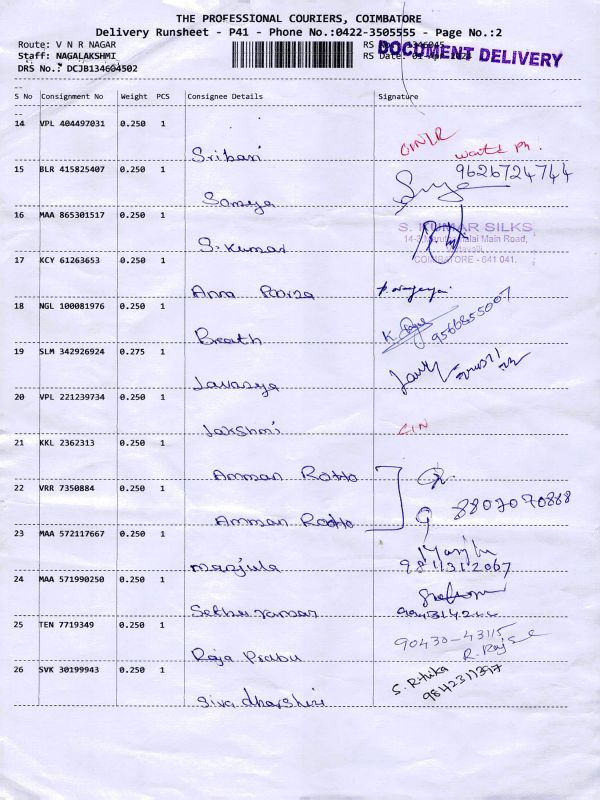 THE PROFESSIONAL COURIERS, COIMBATORE
Delivery Runsheet - P41 - Phone No.:0422-3505555 - Page No.:2
Route: V N R NAGAR
Staff: NAGALAKSHMI
DRS No.: DCJB134604502
RS
RS Date:
DOCUMENT DELIVERY
S No Consignment No Weight PCS Consignee Details Signature
14 VPL 404497031 0.250 1 Srihari
15 BLR 415825407 0.250 1 Somya 9626724744
16 MAA 865301517 0.250 1 S. Kumar
S. KUMAR SILKS
Main Road,
COIMBATORE - 641 041.
17 KCY 61263653 0.250 1 Anna Poorza
18 NGL 100081976 0.250 1 Breath 9566855007
19 SLM 342926924 0.275 1 Lavasya
20 VPL 221239734 0.250 1 Lakshmi
21 KKL 2362313 0.250 1 Amman Rotto
22 VRR 7350884 0.250 1 Amman Rotto
23 MAA 572117667 0.250 1 Manjula Manju
24 MAA 571990250 0.250 1
25 TEN 7719349 0.250 1 Raja Prabu 90430-43115
26 SVK 30199943 0.250 1 Siva dharshini